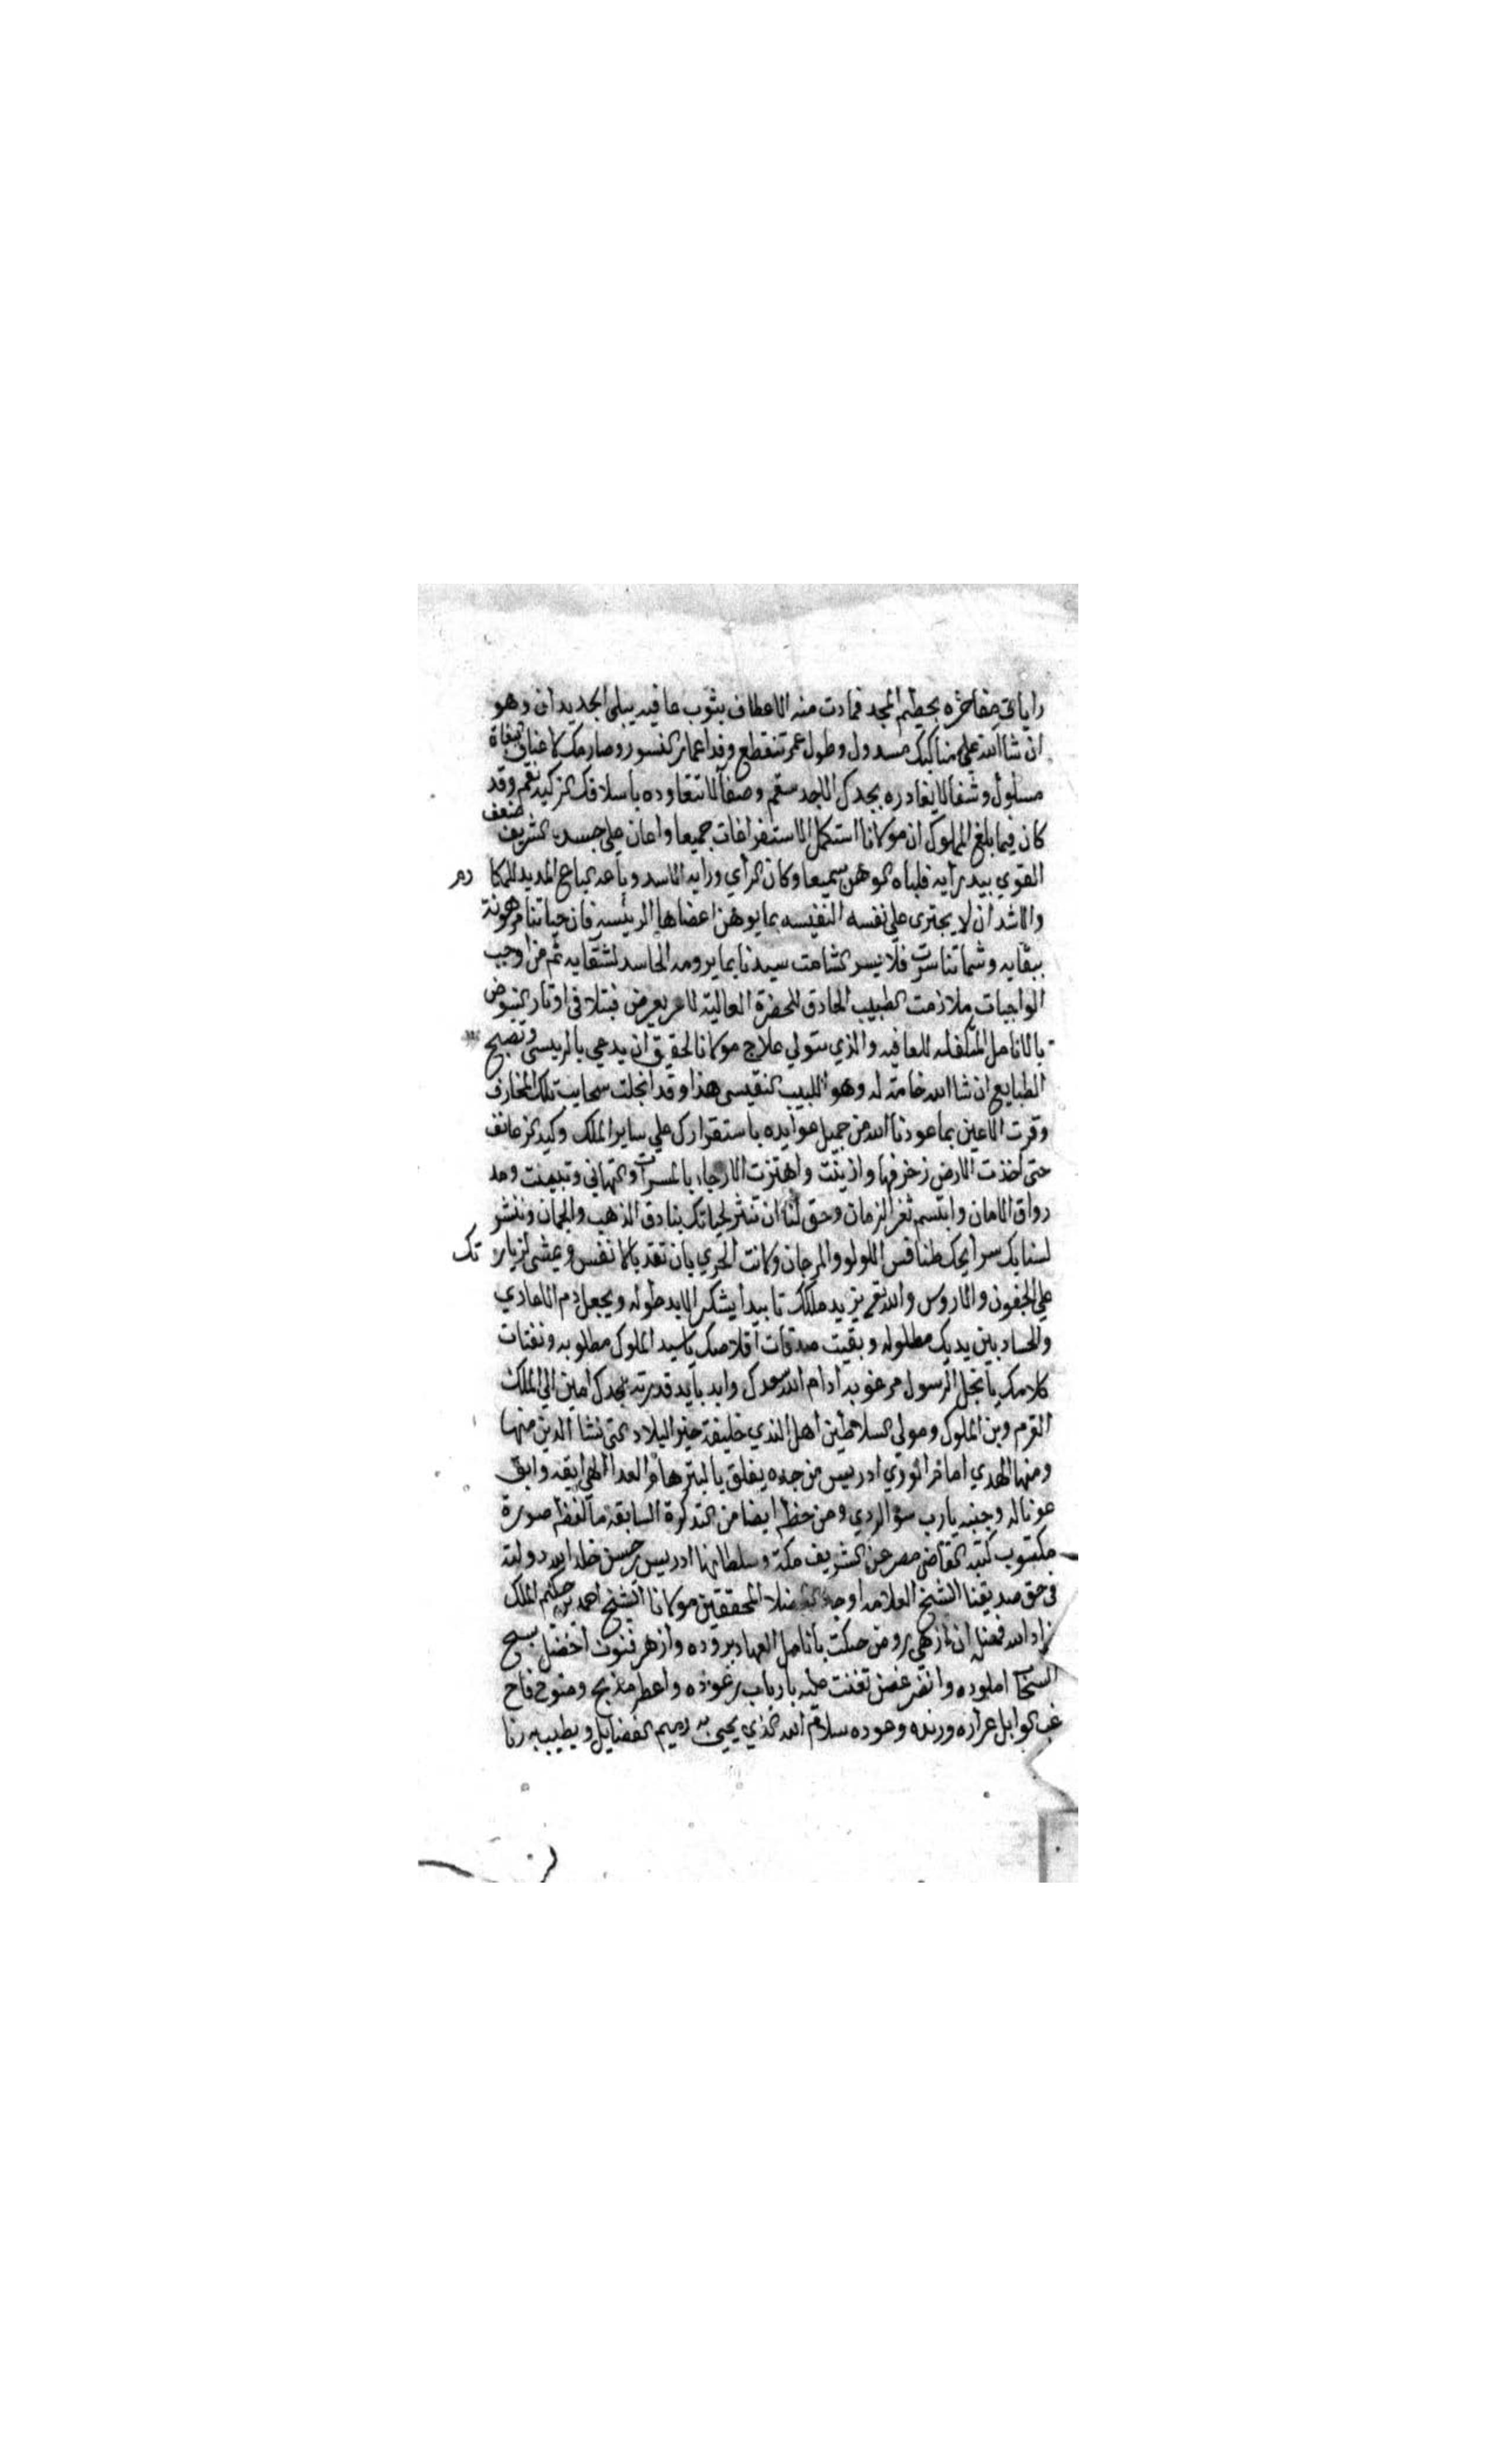 رايات مفاخره بحطيم المجد فمادت منه الاعطاف بثوب عافيه يبلى الجديدان وهو
ان شاالله على مناكبك مسدول وطول عمر تنقطع اعمار النسور وصارمك لاعناق البغاة
مسلول وشفا لا يغادره بجدك الامجد سقم وصفا لا تتعاوده باسلافك نقم وقد
كان فيما بلغ المملوك ان مولانا استكمل الاستفراغات جميعا واعان على جسده الشريف ضعف
القوي بيد رايه فلباه الوهن سميعا وكان الراي ورايه الاسد وباعه الباع المديد للمكا رم
والاشد ان لا يجتري على نفسه النفيسه بما يوهن اعضاها الرئيسه فان حياتنا مرهونة
ببقايه وشماتنا سرت فلا يسر الشامت سيدنا بما يرومه الحاسد لشقايه ثم من اوجب
الواجبات ملازمت الطبيب الحاذق للحضرة العالية لامر يعرض فيتلافى اوتار النبوض
بالانامل المتكفله للعافيه والذي يتولى علاج مولانا لحقيق ان يدعي بالرييس وتصبح
الطبايع ان شاالله خادمة له وهو اللبيب النفيس هذا وقد انجلت سحايب تلك المخاوف
وقرت الاعين بما عودنا الله من جميل عوايده باستقرارك على سايرالملك وكيد كل
حتى اخذت الارض زخرفها وازينت واهتزت الارجاء بالمسرات والتهاني وتبينت ومد
رواق الامان وابتسم ثغر الزمان وحق لنا ان تنثر لحياتك بنادق الذهب والجمان وننشر
لسنابك سرايحك طنافس اللولو والمرجان وكانت الحري بان تفد بالانفس ويمشى لزيار تك
على الجفون والاروس والله تعالى يزيد ملكك تابيدا يشكر الابد طوله ويجعل دم الاعادي
والحساد بين يديك مطلوله وبقيت صدقات اقلامك يا سيد الملوك مطلوبه ونفثات
كلامك يا نجل الرسول مرغوبه ادام الله سعدك وايد بأيد قدرته مجدك امين الي الملك
القرم وبن الملوك ومولى السلاطين اهل الندي خليفة خير البلاد التى نشا الدين منها
ومنها الهدي امام الوري ادريس من جده يفلق بالبتر هام العدا الهي ابقه وابق
عونا له وجنبه يارب سوالردي ومن خطه ايضا من التذكرة السابقه ما لفظه صورة
مكتوب كتبه لقاضي مصر عن الشريف مكة وسلطانها ادريس بن حسن خلد الله دولته
فى حق صديقنا الشيخ العلامه اوحد الفضلا المحققين مولانا الشيخ احمد بن حكيم الملك
زاد الله فضله ان ازهي روض حيكت بانامل العهاد بروده وازهر فنون اخضل بسح
السحاب املوده وانضر غصن تغنت عليه بارباب رغوده واعطر مذبح وصنوج فاح
غب الوابل عراره ورنده وعوده سلام الله الذي يحيى به رميم الفضايل ويطيب به رنا